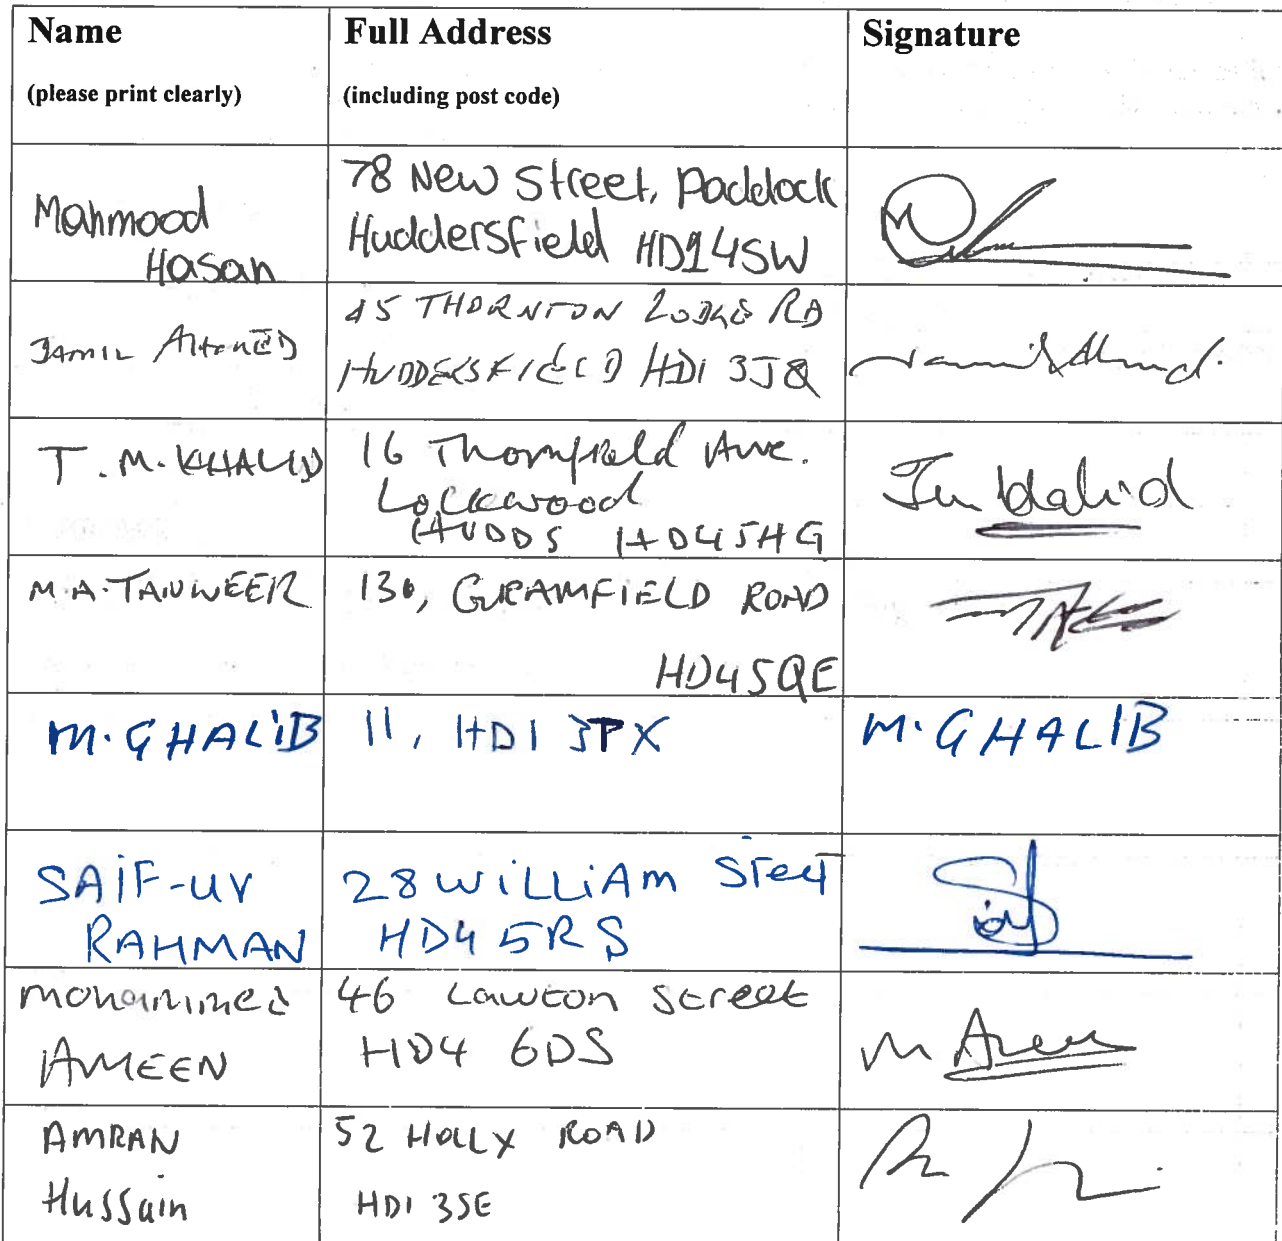 Name
(please print clearly)
Full Address
(including post code)
Signature
Mahmood
Hasan
78 New Street, Paddock
Huddersfield HD14SW
JAMIL AHMED
45 THORNTON LODGE RD
HUDDERSFIELD HD1 3JQ
T. M. KHALID
16 Thornfield Ave.
Lockwood
HUDDS HD45HG
Tm Khalid
M.A. TANWEER
130, ROAD
HD45QE
M. GHALIB
11, HD1 3PX
M. GHALIB
SAIF-UR
RAHMAN
28 WILLIAM Steet
HD4 5RS
Mohammed
AMEEN
46 Lawton Street
HD4 6DS
M Ameen
AMRAN
Hussain
52 HOLLY ROAD
HD1 3SE